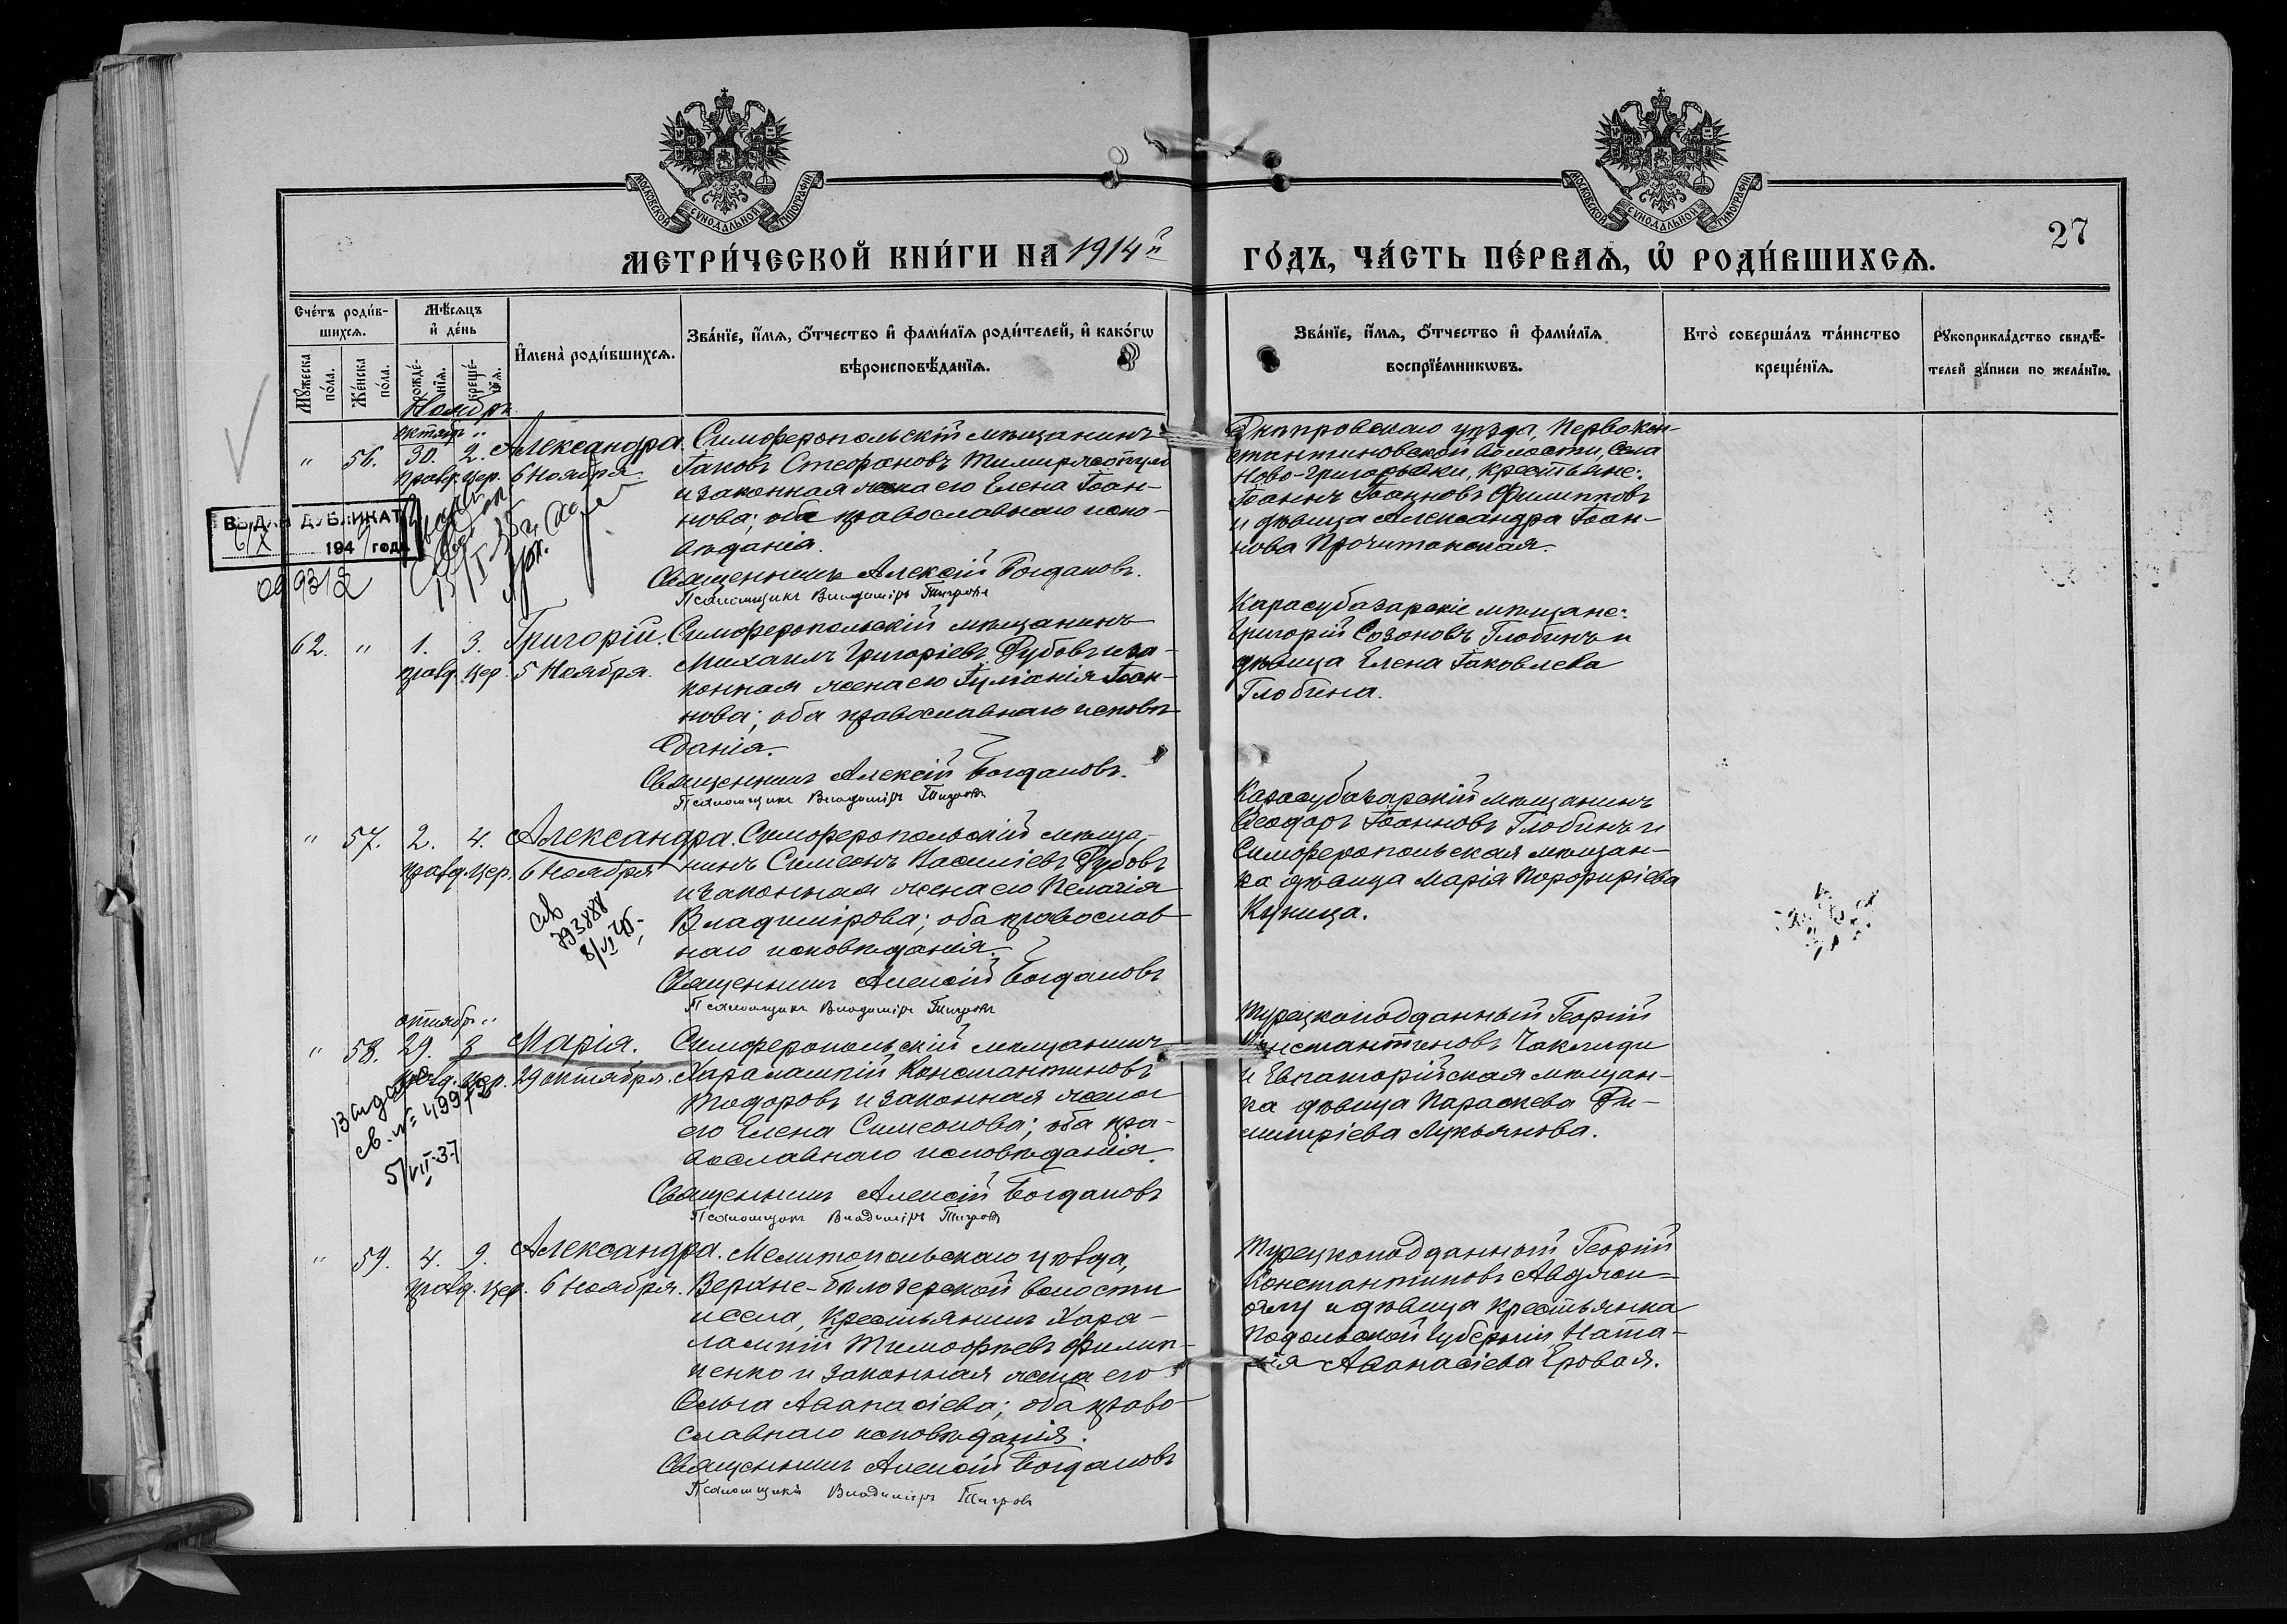 МОСКОВСКОЙ СѴНОДАЛЬНОЙ ТИПОГРАФІИ
МОСКОВСКОЙ СѴНОДАЛЬНОЙ ТИПОГРАФІИ
27
МЕТРИ́ЧЕСКОЙ КНИ́ГИ НА 1914й
ГО́ДЪ, ЧА́СТЬ ПЕ́РВАѦ, Ѽ РОДИ́ВШИХСѦ.
Сче́тъ роди́в-
шихсѧ.
Мꙋ́жеска по́ла.
Же́нска по́ла.
Мѣ́сѧцъ
и҆ де́нь
рожде́-
нїѧ.
креще́-
нїѧ.
И҆мена̀ роди́вшихсѧ.
Зва́нїе, и҆́мѧ, ѻ҆́тчество и҆ фами́лїѧ роди́телей, и҆ како́гѡ
вѣроисповѣ́данїѧ.
Зва́нїе, и҆́мѧ, ѻ҆́тчество и҆ фами́лїѧ
воспрїе́мникѡвъ.
Кто̀ соверша́лъ та́инство
креще́нїѧ.
Рꙋкоприкла́дство свидѣ́-
телей за́писи по жела́нїю.
Ноябрь.
октябр "
" 56. 30. 2. Александра.
празд. цер. 6 Ноября.
Симферопольскій мѣщанинъ
Іаковъ Стефановъ
и законная жена его Елена Іоан-
нова; оба православнаго испо-
вѣданія.
Священникъ Алексій Богдановъ.
Псаломщикъ Владиміръ Тигровъ
Днѣпровскаго уѣзда, Первокон-
стантиновской волости, села
Ново-Григорьевки, крестьяне:
Іоаннъ Іоанновъ Филипповъ
и дѣвица Александра Іоан-
нова
ВЫДАН ДУБЛИКАТ
6/X 194 года
62. " 1. 3. Григорій.
празд. цер. 5 Ноября.
Симферопольскій мѣщанинъ
Михаилъ Григоріевъ Дубовъ и за-
конная жена его Іуліанія Іоан-
нова; оба православнаго исповѣ-
данія.
Священникъ Алексій Богдановъ.
Псаломщикъ Владиміръ Тигровъ
Карасубазарскіе мѣщане:
Григорій Созоновъ Глобинъ и
дѣвица Елена Іаковлева
Глобина.
" 57. 2. 4. Александра.
празд. цер. 6 Ноября
Симферопольскій мѣща-
нинъ Симеонъ Василіевъ Дубовъ
и законная жена его Пелагія
Владимірова; оба православ-
наго исповѣданія.
Священникъ Алексій Богдановъ
Псаломщикъ Владиміръ Тигровъ
Карасубазарскій мѣщанинъ
Ѳеодоръ Іоанновъ Глобинъ и
Симферопольская мѣщан-
ка дѣвица Марія Порфиріева
Куница.
октябрь "
" 58. 29. 3 Марія.
празд. цер. 29 октября.
Симферопольскій мѣщанинъ
Харалампій Константиновъ
Тодоровъ и законная жена
его Елена Симеонова; оба пра-
вославнаго исповѣданія.
Священникъ Алексій Богдановъ
Псаломщикъ Владиміръ Тигровъ
Выдано
св. № 49972
5/VII-37
Турецкоподданный Георгій
Константиновъ Чаклиди
и Евпаторійская мѣщан-
ка дѣвица Параскева Ди-
митріева Лукьянова.
" 59. 4. 9. Александра.
празд. цер. 6 Ноября.
Мелитопольскаго уѣзда,
Верхне-Бѣлозерской волости
и села, крестьянинъ Хара-
лампій Тимоѳеевъ Филип-
пенко и законная жена его
Ольга Аѳанасіева; оба право-
славнаго исповѣданія.
Священникъ Алексій Богдановъ
Псаломщикъ Владиміръ Тигровъ
Турецкоподданный Георгій
Константиновъ
и дѣвица крестьянка
Подольской губерніи Ната-
лія Аѳанасіева Еровая.